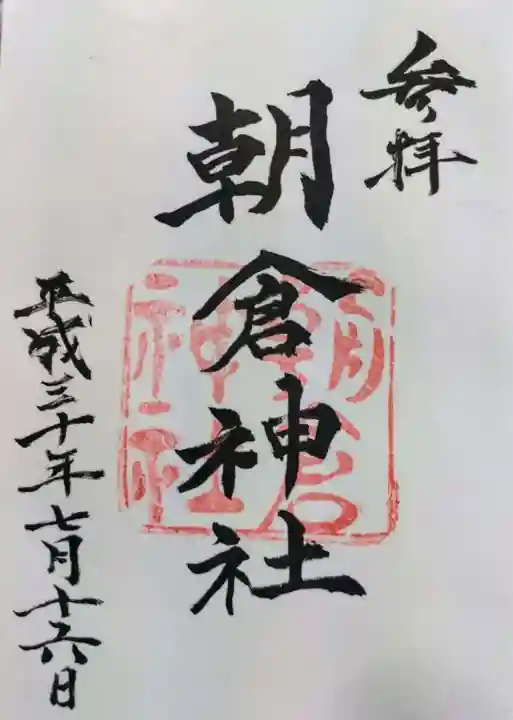 参拝
朝倉神社
朝倉
神社
平成三十年七月十六日